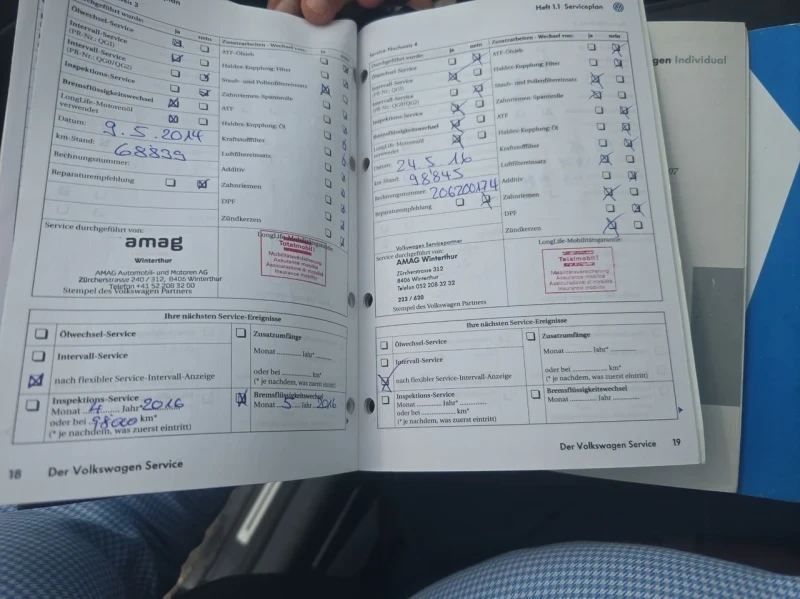 durchgeführt wurde:
ja nein
Ölwechsel-Service
Intervall-Service
(PR-Nr.: QG1)
Intervall-Service
(PR-Nr.: QG0/QG2)
Inspektions-Service
Bremsflüssigkeitswechsel
LongLife-Motorenöl
verwendet
Datum: 9.5.2014
km-Stand: 68839
Rechnungsnummer:
Reparaturempfehlung
Zusatzarbeiten - Wechsel von:
ja nein
ATF-Ölsieb
Haldex-Kupplung: Filter
Staub- und Pollenfiltereinsatz
Zahnriemen-Spannrolle
ATF
Haldex-Kupplung: Öl
Kraftstofffilter
Luftfiltereinsatz
Additiv
Zahnriemen
DPF
Zündkerzen
Service durchgeführt von:
amag
Winterthur
AMAG Automobil- und Motoren AG
Zürcherstrasse 240 / 312, 8406 Winterthur
Telefon +41 52 208 32 00
Stempel des Volkswagen Partners
LongLife-Mobilitätsgarantie
Totalmobil!
Mobilitätsversicherung
Assurance mobilité
Assicurazione di mobilità
Insurance mobility
Ihre nächsten Service-Ereignisse
Ölwechsel-Service
Intervall-Service
nach flexibler Service-Intervall-Anzeige
Inspektions-Service
Monat 4 Jahr* 2016
oder bei 98000 km*
(* je nachdem, was zuerst eintritt)
Zusatzumfänge
Monat ............ Jahr* ............
oder bei ............ km*
(* je nachdem, was zuerst eintritt)
Bremsflüssigkeitswechsel
Monat 5 Jahr 2016
18 Der Volkswagen Service
Heft 1.1 Serviceplan
Durchgeführt wurde:
ja nein
Ölwechsel-Service
Intervall-Service
(PR-Nr.: QG1)
Intervall-Service
(PR-Nr.: QG0/QG2)
Inspektions-Service
Bremsflüssigkeitswechsel
LongLife-Motorenöl
verwendet
Datum: 24.5.16
km-Stand: 98845
Rechnungsnummer: 206200174
Reparaturempfehlung
Zusatzarbeiten - Wechsel von:
ja nein
ATF-Ölsieb
Haldex-Kupplung: Filter
Staub- und Pollenfiltereinsatz
Zahnriemen-Spannrolle
ATF
Haldex-Kupplung: Öl
Kraftstofffilter
Luftfiltereinsatz
Additiv
Zahnriemen
DPF
Zündkerzen
Volkswagen Servicepartner
Service durchgeführt von:
AMAG Winterthur
Zürcherstrasse 312
8406 Winterthur
Telefon 052 208 32 32
Stempel des Volkswagen Partners
LongLife-Mobilitätsgarantie
Totalmobil!
Mobilitätsversicherung
Assurance mobilité
Assicurazione di mobilità
Insurance mobility
Ihre nächsten Service-Ereignisse
Ölwechsel-Service
Intervall-Service
nach flexibler Service-Intervall-Anzeige
Inspektions-Service
Monat ............ Jahr* ............
oder bei ............ km*
(* je nachdem, was zuerst eintritt)
Zusatzumfänge
Monat ............ Jahr* ............
oder bei ............ km*
(* je nachdem, was zuerst eintritt)
Bremsflüssigkeitswechsel
Monat ............ Jahr ............
Der Volkswagen Service 19
gen Individual
07